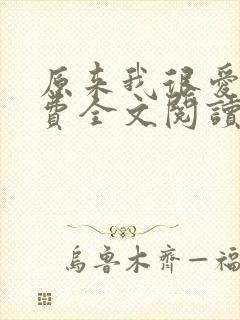 原来我很爱
费全文阅读
乌鲁木齐—福